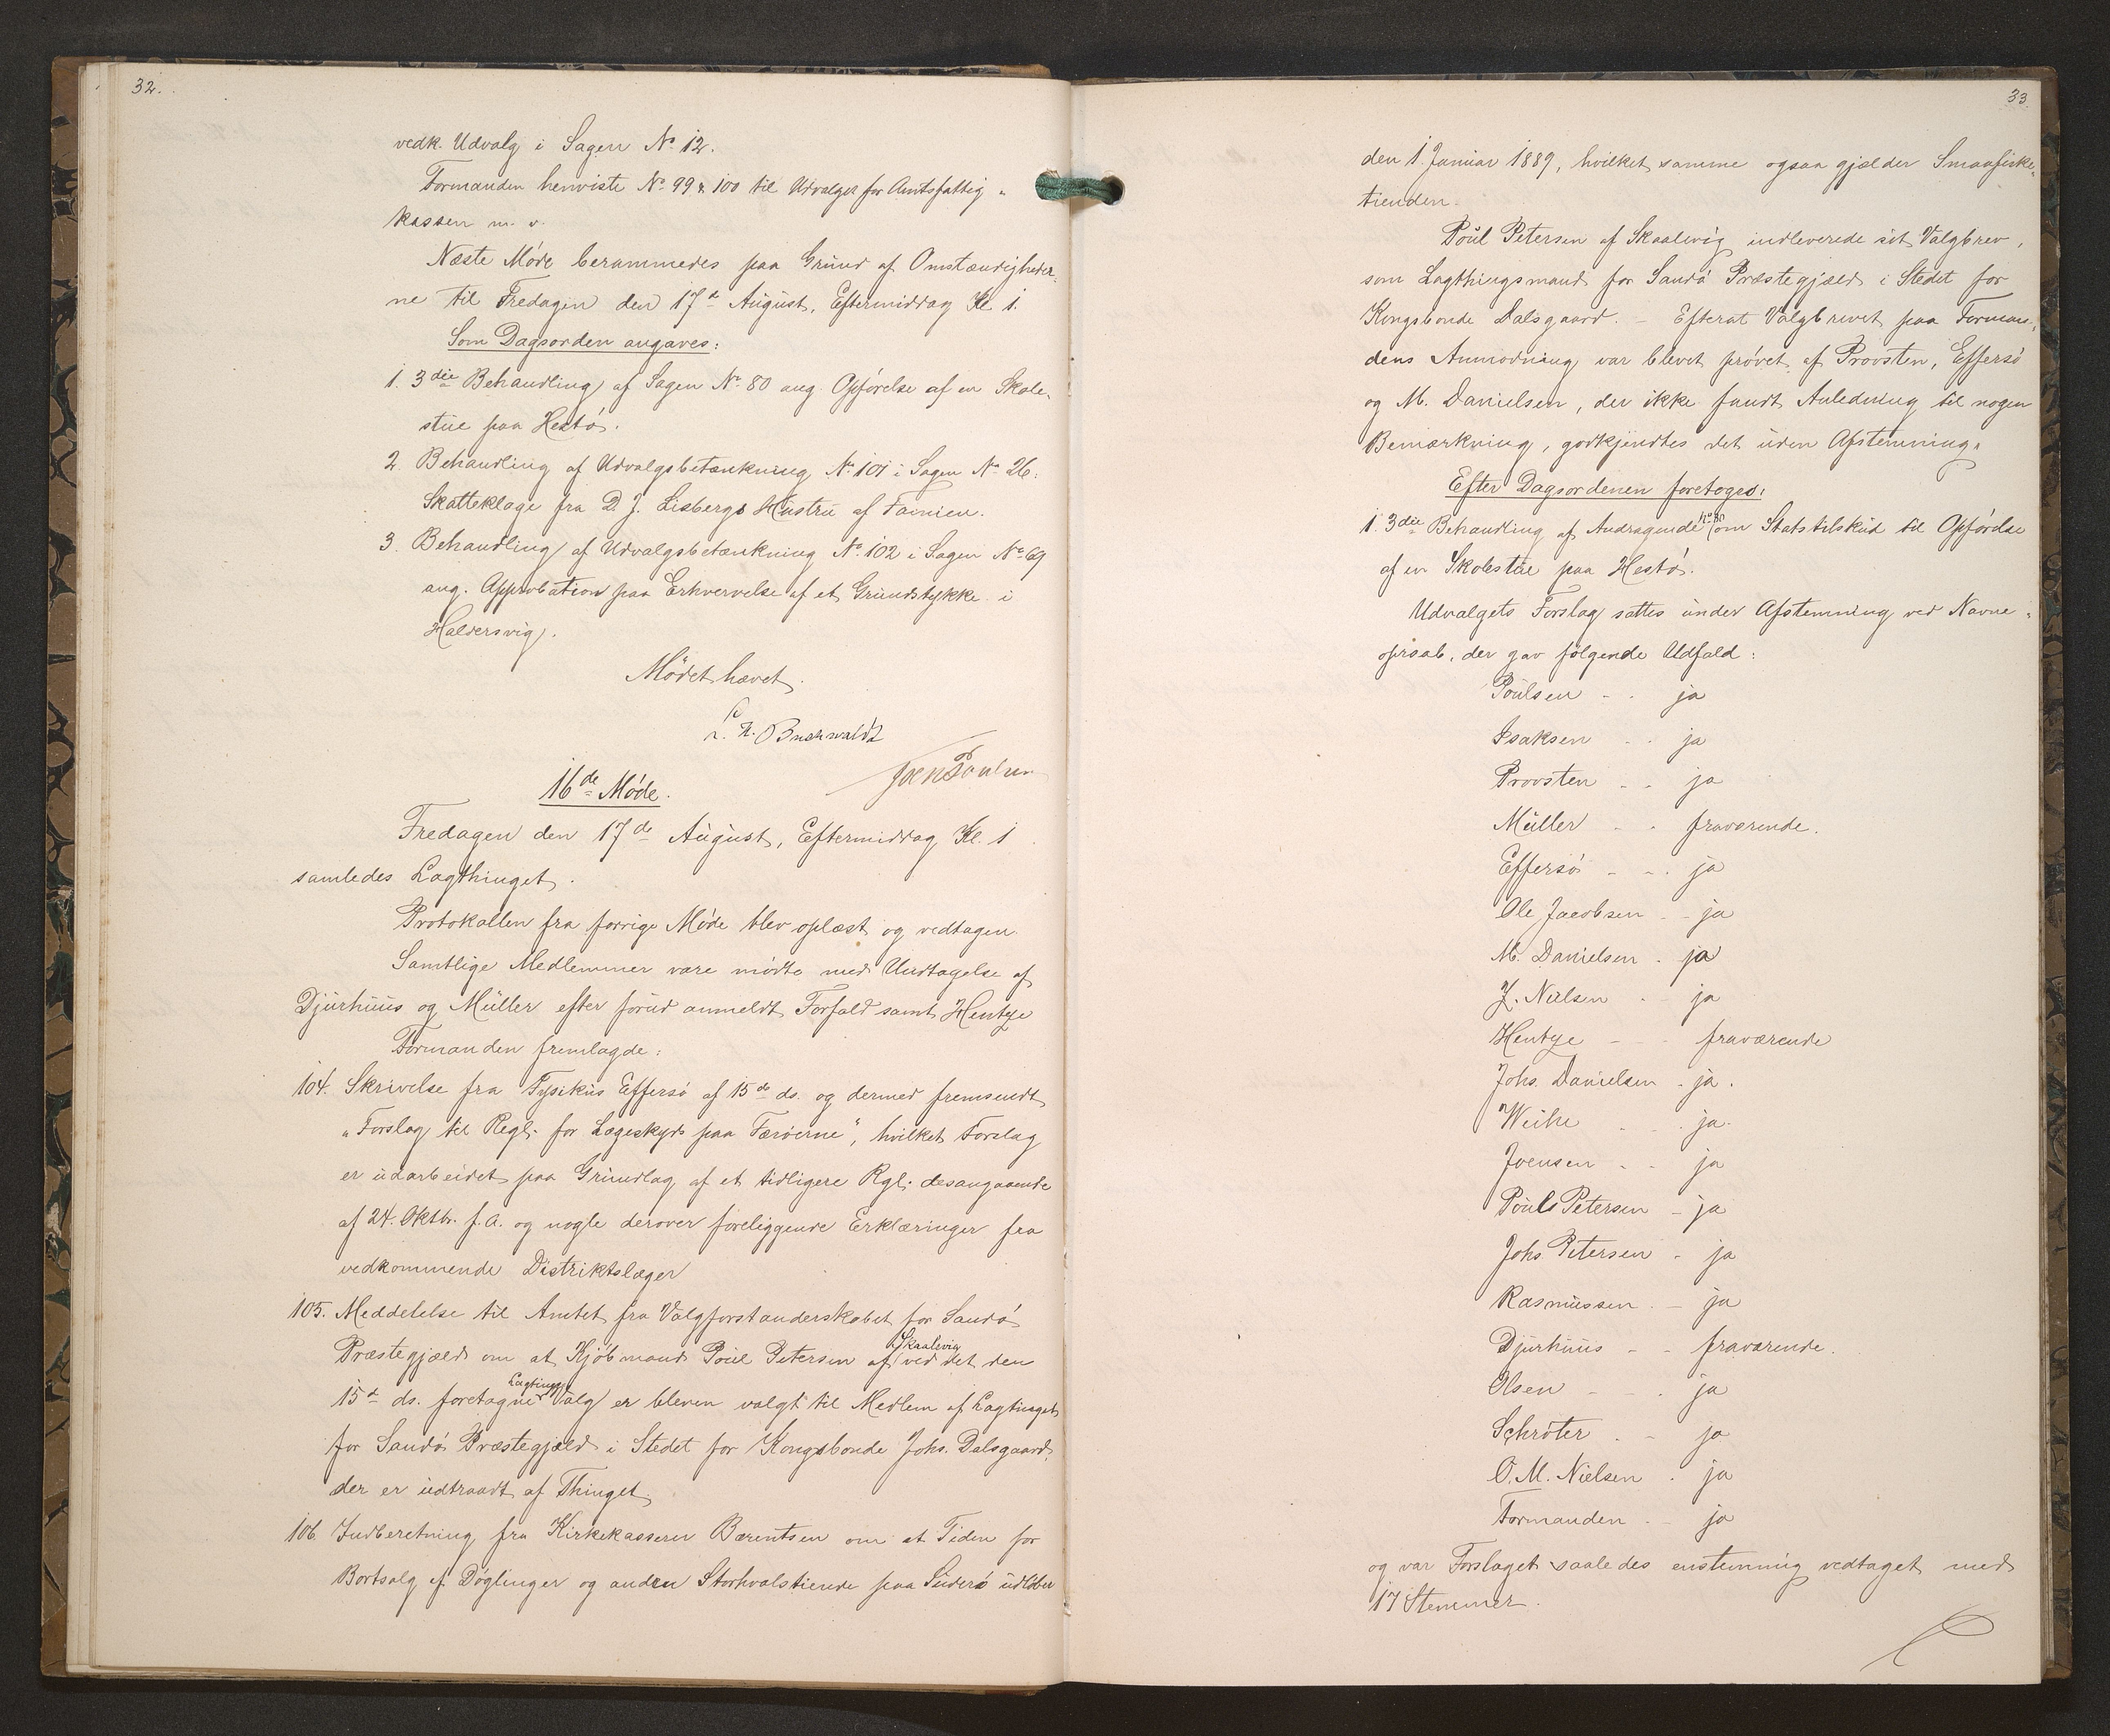 32.
vedk. Udvalg i Sagen No 12.
Formanden henviste No 99 & 100 til Udvalget for Amtsfattig-
kassen m. v.
Næste Møde berammedes paa Grund af Omstændigheder-
ne til Fredagen den 17de August, Eftermiddag Kl. 1.
Som Dagsorden angaves:
1. 3die Behandling af Sagen No 80 ang. Opførelse af en Skole-
stue paa Hestø.
2. Behandling af Udvalgsbetænkning No 101 i Sagen No 26:
Skatteklage fra D. J. Lisbergs Hustru af Famien.
3. Behandling af Udvalgsbetænkning No 102 i Sagen No 69
ang. Approbation paa Erhvervelse af et Grundstykke i
Haldersvig.
Mødet hævet.
Buchwaldt
Joen Poulsen
16de Møde.
Fredagen den 17de August, Eftermiddag Kl. 1
samledes Lagthinget.
Protokollen fra forrige Møde blev oplæst og vedtagen.
Samtlige Medlemmer vare mødte med Undtagelse af
Djurhuus og Müller efter forud anmeldt Forfald samt Hentze
Formanden fremlagde:
104. Skrivelse fra Fysikus Effersø af 15de ds. og dermed fremsendt
"Forslag til Regl. for Lægeskyds paa Færøerne", hvilket Forslag
er udarbeidet paa Grundlag af et tidligere Rgl. desangaaende
af 24. Oktbr. f. A. og nogle derover foreliggende Erklæringer fra
vedkommende Distriktslæger
105. Meddelelse til Amtet fra Valgforstanderskabet for Sandø
Præstegjæld om at Kjøbmand Poul Petersen af Skaalevig ved det den
15de ds. foretagne Lagtings Valg er bleven valgt til Medlem af Lagtinget
for Sandø Præstegjæld i Stedet for Kongsbonde Johs. Dalsgaard,
der er udtraadt af Thinget.
106. Indberetning fra Kirkekasserer Bærentsen om at Tiden for
Bortsalg af Døglinger og anden Storhvalstiende paa Suderø udløber
33.
den 1. Januar 1889, hvilket samme ogsaa gjælder Smaafiske-
tienden.
Poul Petersen af Skaalevig indleverede sit Valgbrev,
som Lagthingsmand for Sandø Præstegjæld i Stedet for
Kongsbonde Dalsgaard. - Efterat Valgbrevet paa Forman-
dens Anmodning var blevet prøvet af Provsten, Effersø
og M. Danielsen, der ikke fandt Anledning til nogen
Bemærkning, godkjendtes det uden Afstemning.
Efter Dagsordenen foretoges:
1. 3die Behandling af Andragende No 80 om Statstilskud til Opførelse
af en Skolestue paa Hestø.
Udvalgets Forslag sattes under Afstemning ved Navne-
opraab, der gav følgende Udfald:
Poulsen - - ja
Isaksen - - ja
Provsten - - ja
Müller - - fraværende.
Effersø - - - ja
Ole Jacobsen - - ja
M. Danielsen - ja
J. Nielsen - - ja
Hentze - - - fraværende
Johs. Danielsen - ja.
Weihe - - - ja.
Joensen - - ja
Poul Petersen - ja
Johs Petersen - ja
Rasmussen - - ja
Djurhuus - - fraværende.
Olsen - - - ja
Schrøter - - ja
O. M. Nielsen - ja
Formanden - - ja
og var Forslaget saaledes enstemmig vedtaget med
17 Stemmer.